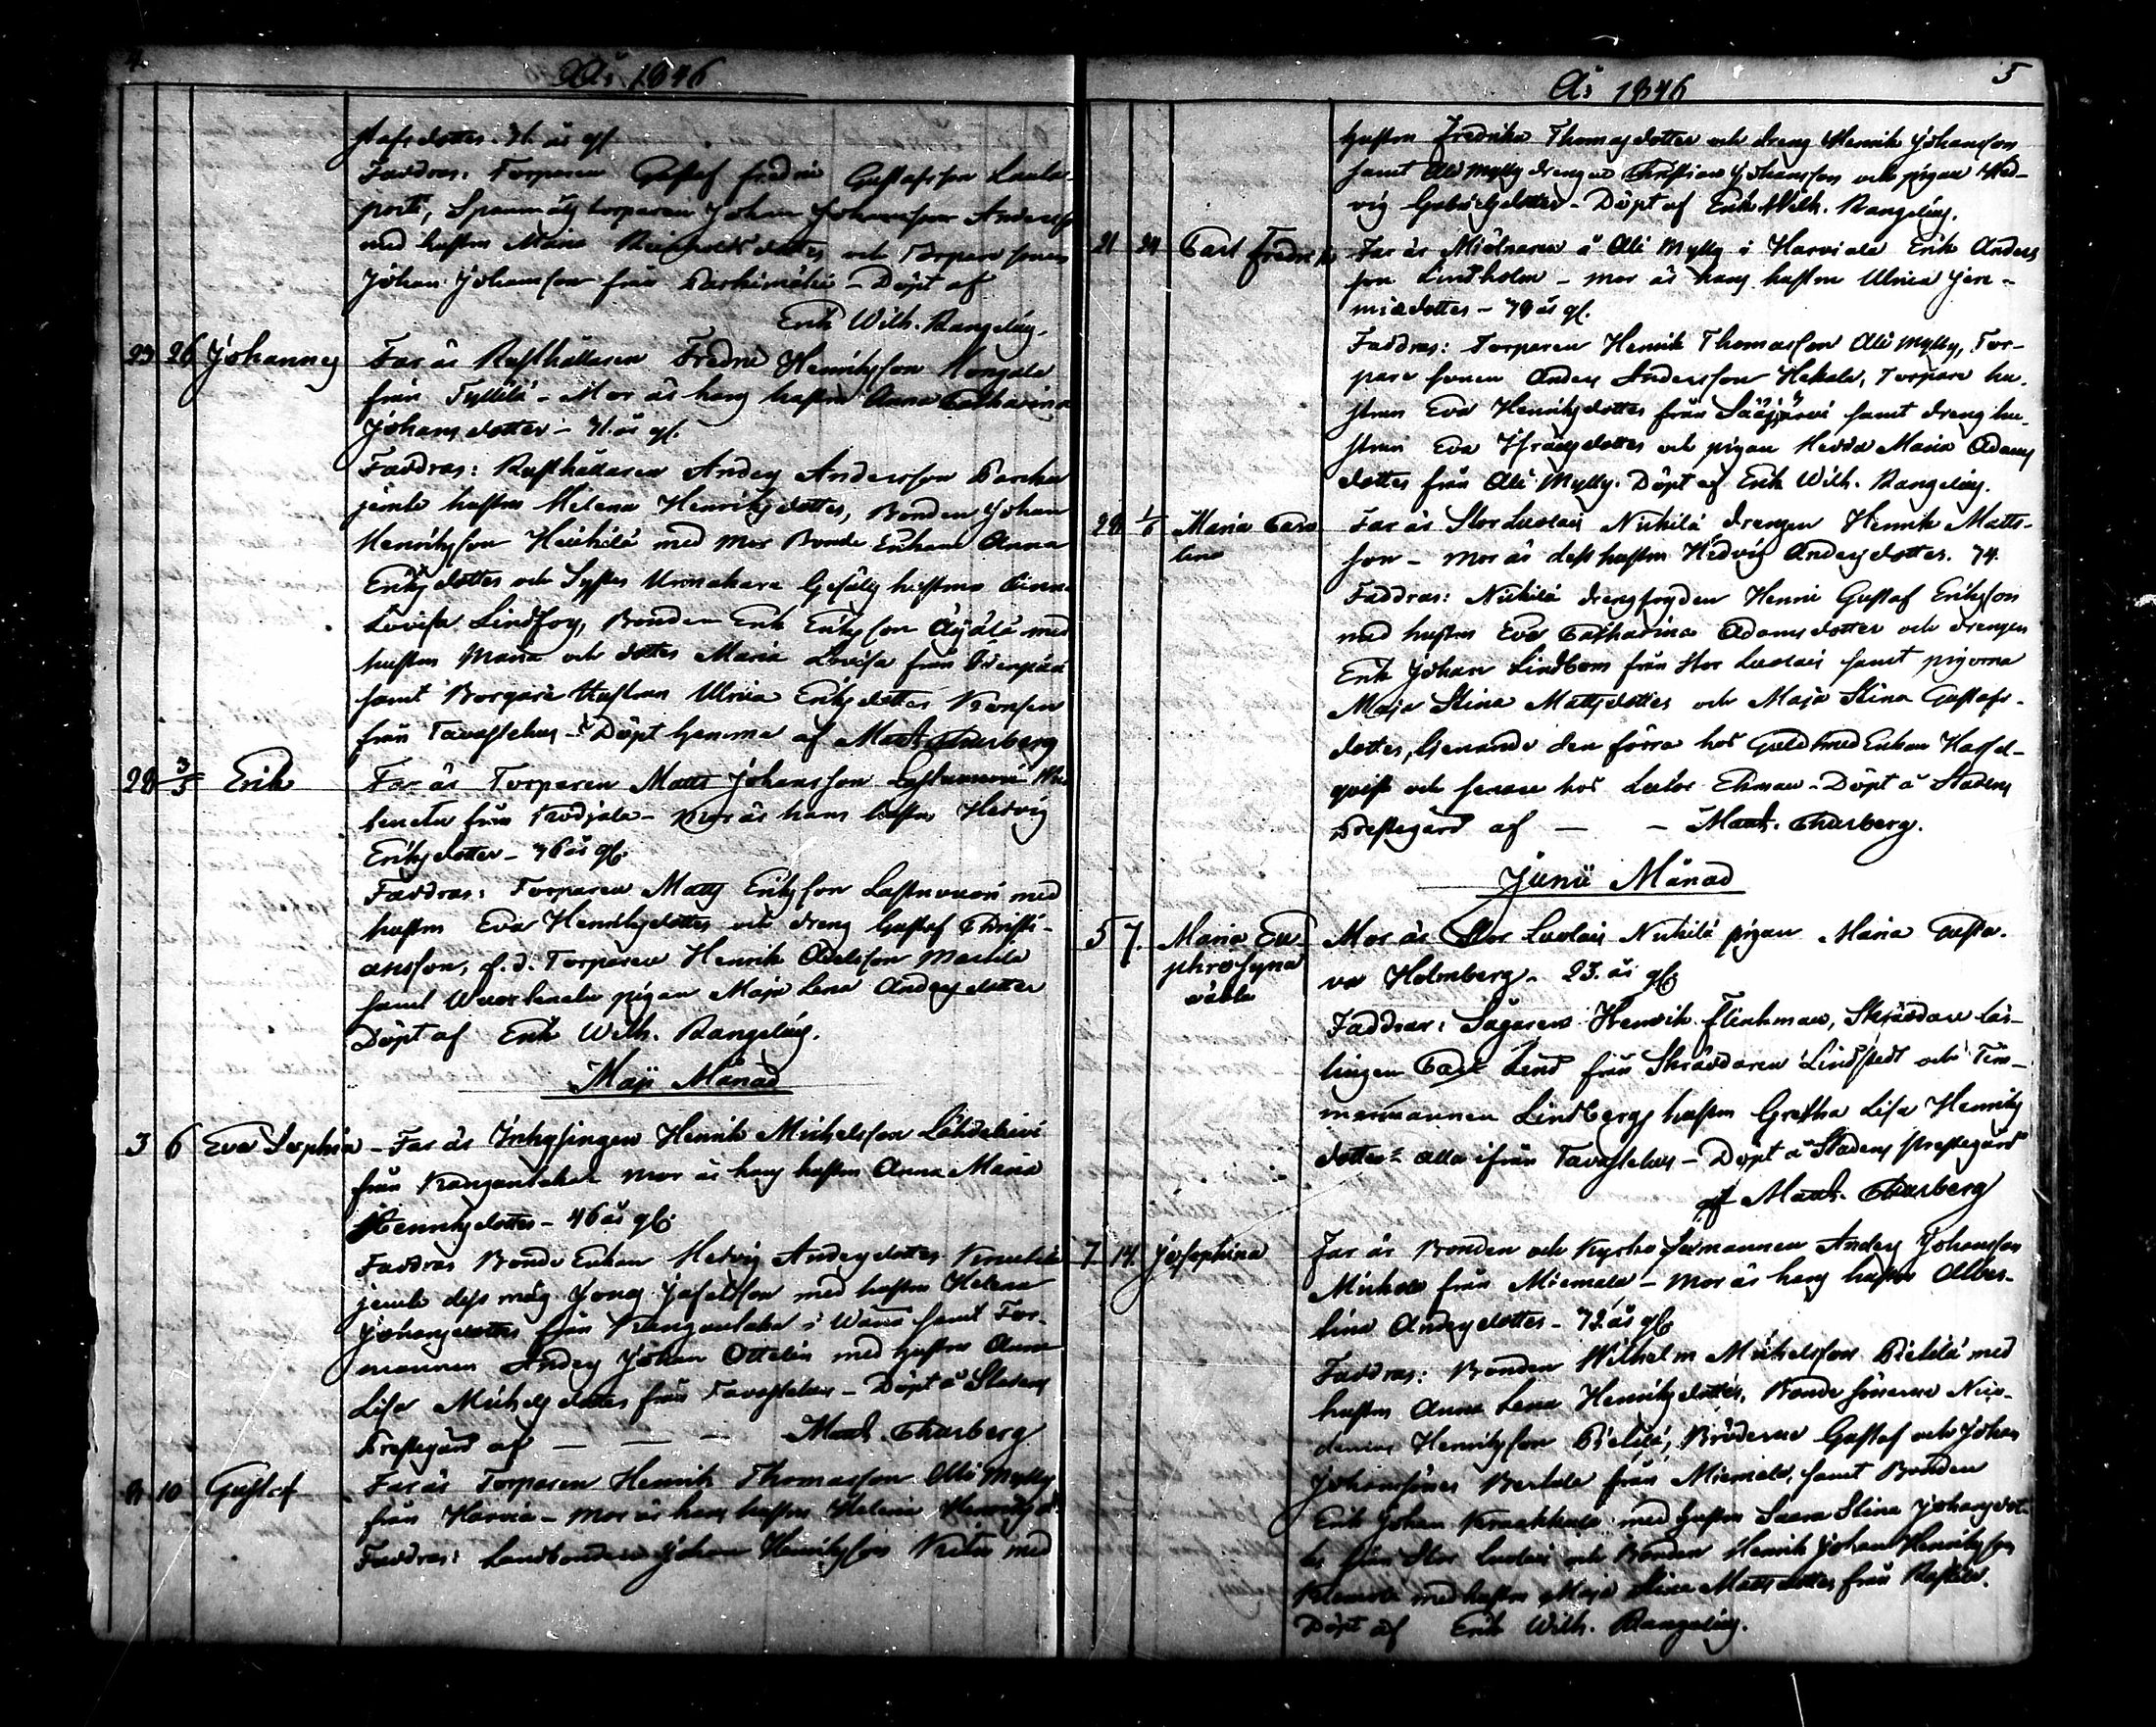 4.
År 1846
stafsdotter. 41. år gl.
Faddrar: Torparen Gustaf Fredric Gustafsson Laula-
portti, Spannmåls torparen Johan Johansson
med hustru Maria Reinholdsdotter och Torpare sonen
Johan Johansson från Parkimäki - Döpt af
Erik Wilh. Rangelius.
23 26 Johannes Far är Rusthållaren Fredric Henriksson Mongala
från Tyllilä - Mor är hans hustru Anna Catharina
Johansdotter - 41. år gl.
Faddrar: Rusthållaren Anders Andersson
jemte hustru Helena Henriksdotter, Bonden Johan
Henriksson Heikkilä med Mor Bonde Enkan Anna
Eriksdotter och Syster Urmakare Gesälls hustrun
Lovisa Lindfors, Bonden Erik Eriksson Äijälä med
hustru Maria och dotter Maria Lovisa från Idenpää
samt Borgare Hustrun Ulrica Eriksdotter
från Tavastehus - Döpt hemma af Matth. Churberg
28 3/5 Erik Far är Torparen Matts Johansson
från - Mor är hans hustru Hedvig
Eriksdotter - 36 år gl.
Faddrar: Torparen Matts Eriksson med
hustru Eva Henriksdotter och dreng Gustaf Christi-
ansson, f.d. Torparen Henrik Adelsson
samt pigan Maja Lena Andersdotter
Döpt af Erik Wilh. Rangelius.
Maji Månad
3 6 Eva Sophia - Far är Inhysingen Henrik Michelsson
från Kangantaka Mor är hans hustru Anna Maria
Henriksdotter - 46 år gl.
Faddrar Bonde Enkan Hedvig Andersdotter
jemte dess måg Jonas Josefsson med hustru Helena
Johansdotter från Kangantaka i Wånå samt For-
mannen Anders Johan Ottelin med hustru Anna
Lisa Michelsdotter från Tavastehus - Döpt å Stadens
Prestegård af — — — Matth. Churberg
9 10 Gustaf Far är Torparen Henrik Thomasson Alli Mylly
från Harvia - Mor är hans hustru Helena Henriksd:
Faddrar: Landbonden Johan Henriksson med
År 1846
5
hustru Fredrika Thomasdotter och dreng Henrik Johansson
samt Alli Mylly drengen Christian Johansson och pigan Hed-
vig Gabrielsdotter - Döpt af Erik Wilh. Rangelius.
21 24 Carl Fredrik Far är Mjölnaren å Alli Mylly i Harviala Erik Anders
son Lindholm - Mor är hans hustru Ulrica Jere-
miædotter - 39 år gl.
Faddrar: Torparen Henrik Thomasson Alli Mylly, Tor-
pare sonen Anders Andersson Hekala, Torpare hu-
strun Eva Henriksdotter från Sääjärvi samt dreng hu-
strun Eva Israelsdotter och pigan Hedda Maria Adams
dotter från Alli Mylly. Döpt af Erik Wilh. Rangelius.
28 1/6 Maria Caro- Far är Stor Luolais Nikkilä drengen Henrik Matts-
lina son - Mor är dess hustru Hedvig Andersdotter. 34.
Faddrar: Nikkilä drengfogden Henric Gustaf Eriksson
med hustru Eva Catharina Adamsdotter och drengen
Erik Johan Lindbom från Stor Luolais samt pigorna
Maja Stina Mattsdotter och Maja Stina Gustafs-
dotter, tjenande den förra hos Guldsmed Enkan Hassel-
qvist och senare hos Doctor Ekman - Döpt å Stadens
Prestegård af — — Matth. Churberg.
Junii Månad
5 7. Maria Eu- Mor är Stor Luolais Nikkilä pigan Maria Gusta-
phrosyna va Holmberg - 23. år gl.
oäkta Faddrar: Sågaren Henrik Flinkman, Skräddare lär-
lingen Carl Lind från Skräddaren Lindstedt och Tim-
mermannen Lindbergs hustru Gretha Lisa Henriks
dotter alla ifrån Tavastehus - Döpt å Stadens prestegård
af Matth. Churberg
7 14. Josephina Far är Bonden och Kyrko Sexmannen Anders Johansson
Mickola från Miemala - Mor är hans hustru Alber-
tina Andersdotter - 32 år gl.
Faddrar: Bonden Wilhelm Michelsson Pietilä med
hustru Anna Lena Henriksdotter, Bonde sönerne Nico-
demus Henriksson Pietilä, Bröderne Gustaf och Johan
Johanssöner Bertula från Miemala, samt Bonden
Erik Johan med hustru Saara Stina Johansdot-
ter från Stor Luolais och Bonden Henrik Johan Henriksson
med hustru Maja Stina Mattsdotter från
Döpt af Erik Wilh. Rangelius.